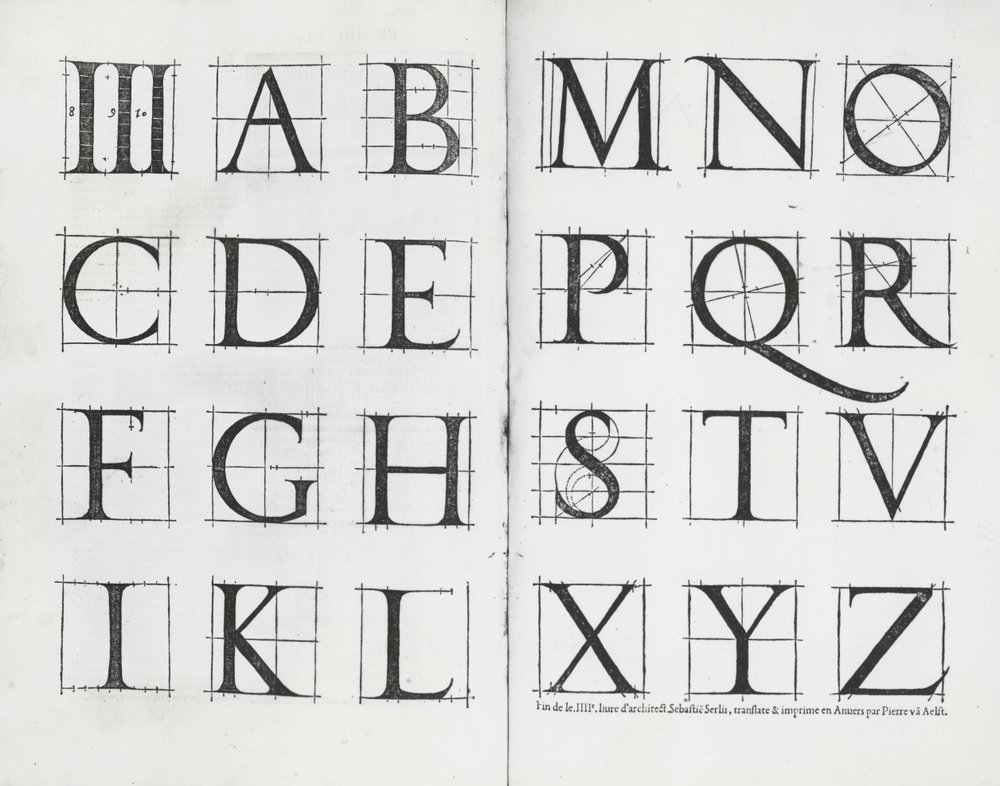 III A B
8 9 10
C D E
F G H
I K L
M N O
P Q R
S T V
X Y Z
Fin de le.IIIIe. liure d'architect.Sebastiē Serlii, tranſlate & imprime en Anuers par Pierre vā Aelſt.